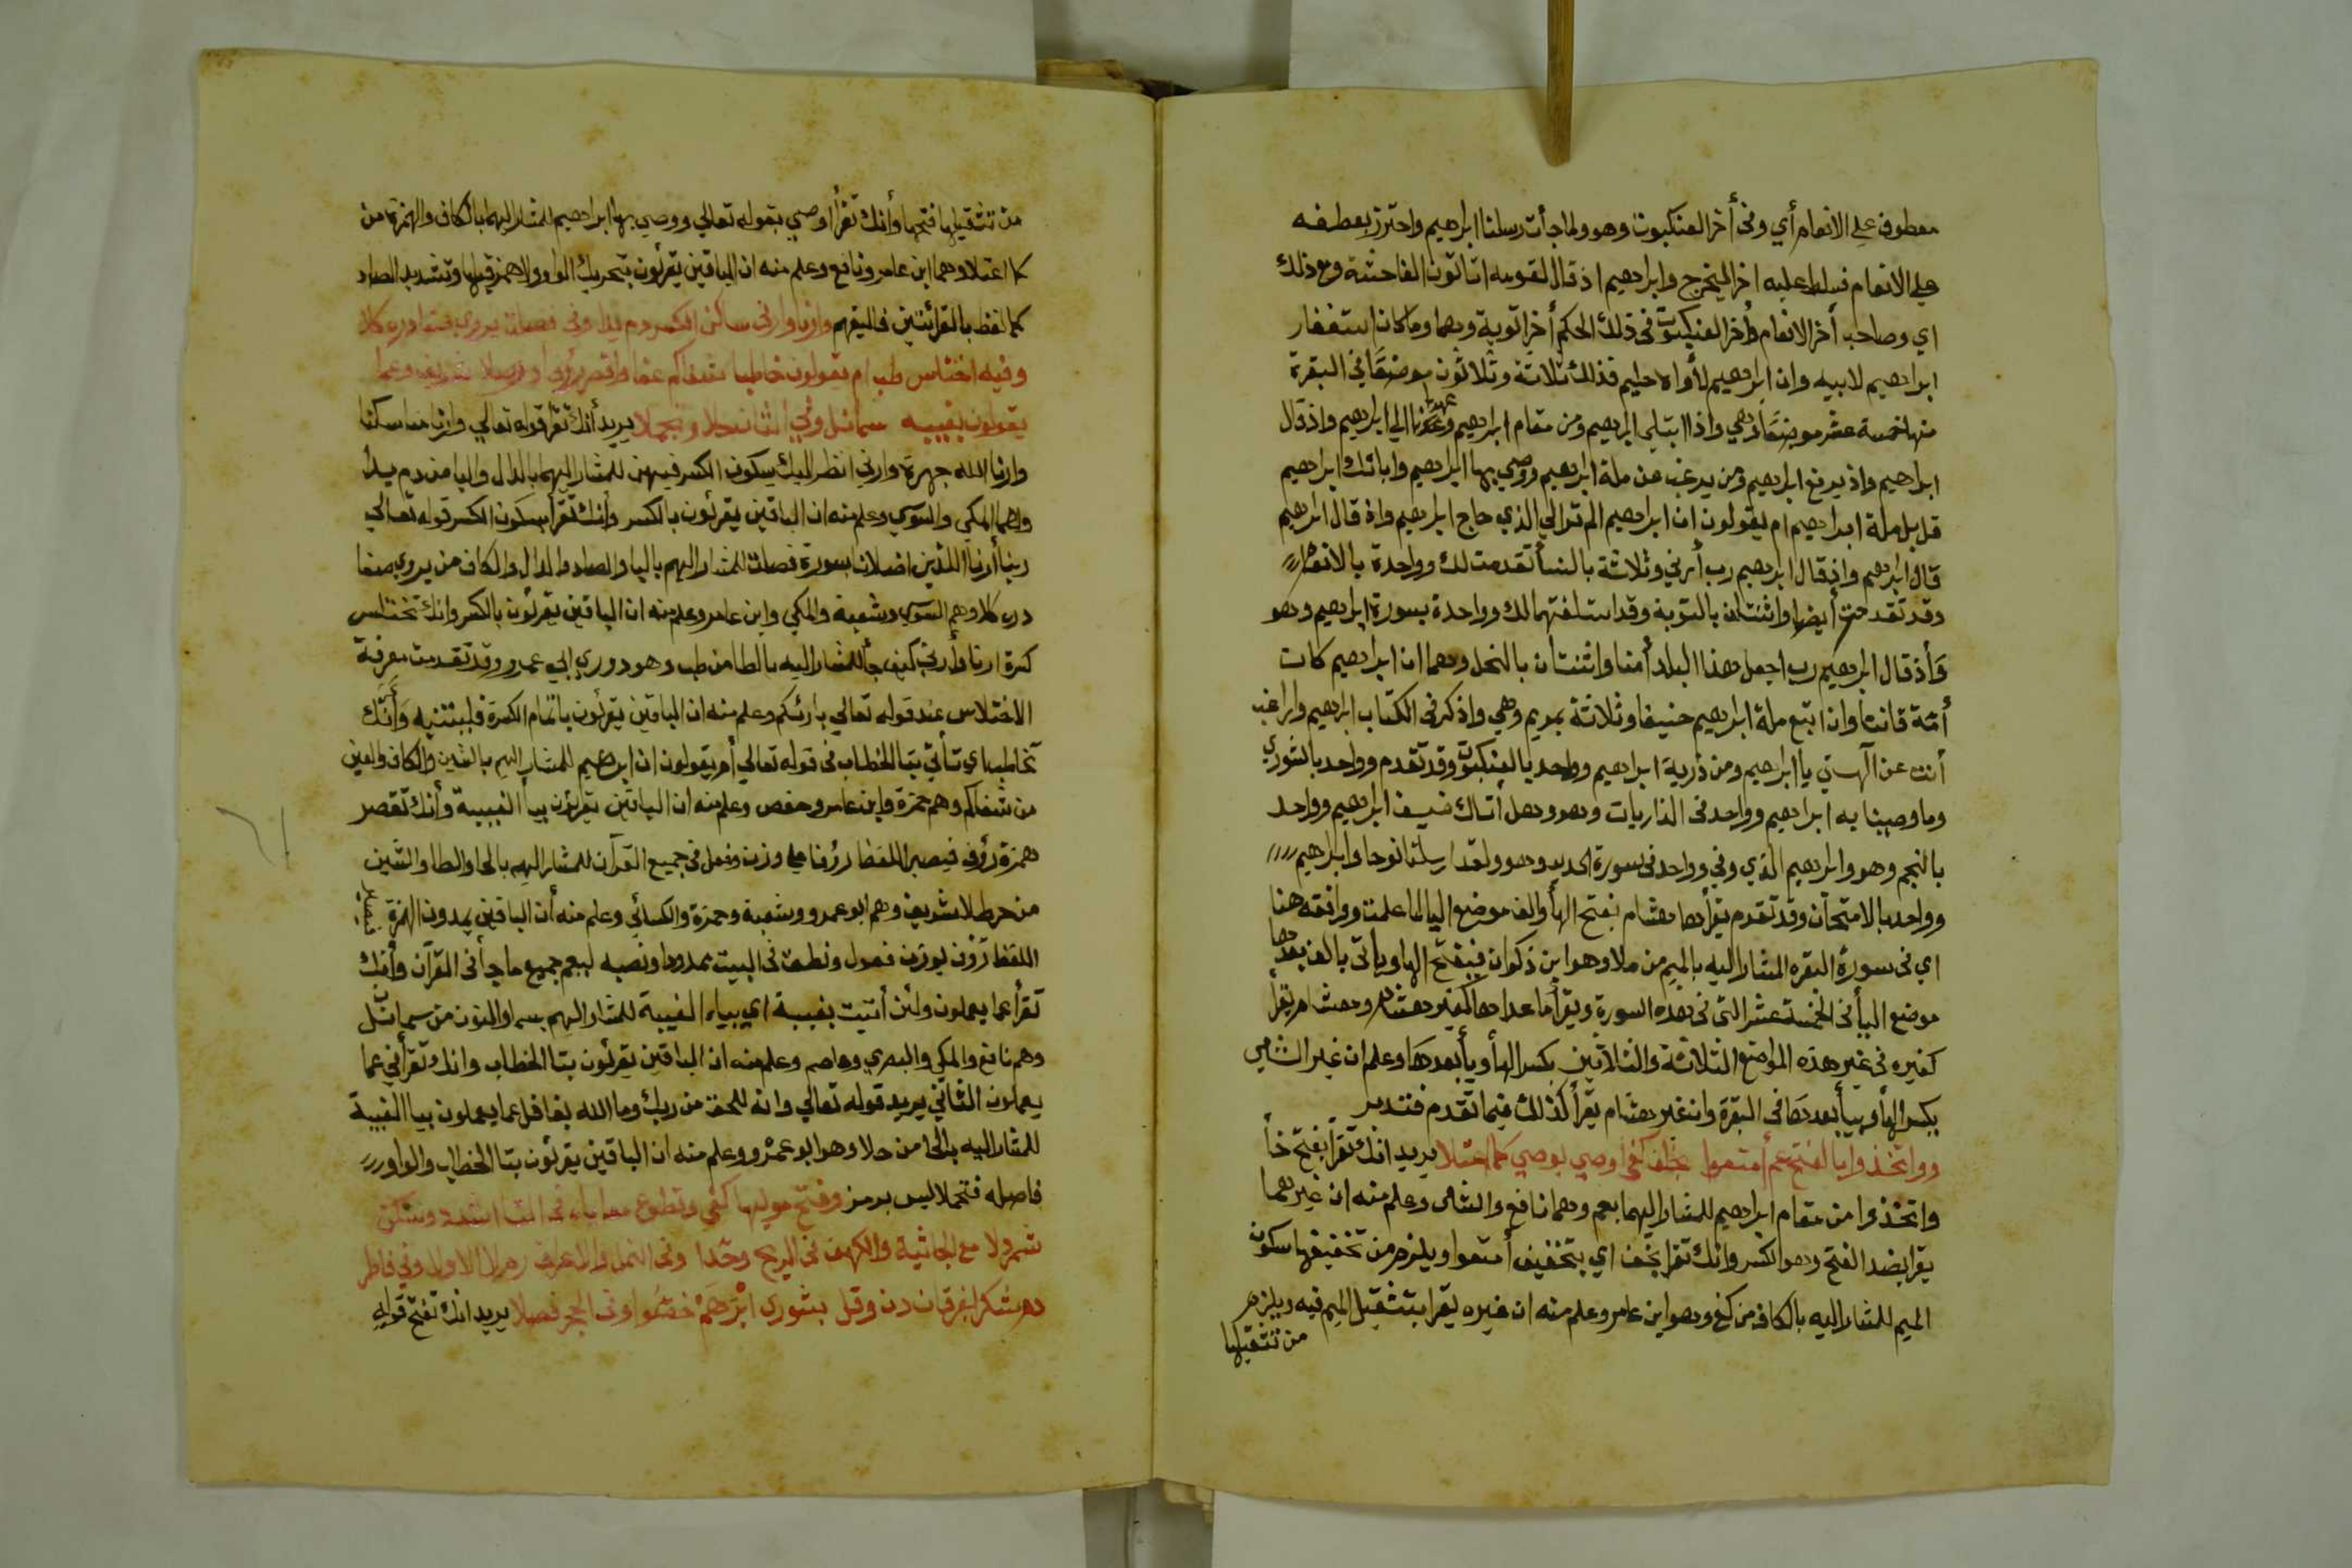 معطوف على الانعام أي وفى أخر العنكبوت وهو ولما جأت رسلنا ابراهيم واحترز بعطفه
على الانعام فسلط عليه اخر ليخرج وابراهيم اذ قال لقومه اتاتون الفاحشة ومع ذلك
اي وصاحب أخر الانعام وأخر العنكبوت فى ذلك الحكم أخر اتوبة وهما وما كان استغفار
ابراهيم لابيه وان ابراهيم لأواه حليم فذلك ثلاثة وثلاثون موضعا فى البقرة
منها خمسة عشر موضعا وهي واذا ابتلى ابراهيم ومن مقام ابراهيم وعهدنا الي ابراهيم واذ قال
ابراهيم واذ يرفع ابراهيم ومن يرغب عن ملة ابراهيم ووصي بها ابراهيم وابائك ابراهيم
قل بل ملة ابراهيم ام يقولون ان ابراهيم الم تر الي الذي حاج ابراهيم واذ قال ابراهيم
قال ابراهيم واذ قال ابراهيم رب أرني وثلاثة بالنسأ تقدمت لك وواحدة بالانعام
وقد تقدمت أيضا واثنتان بالتوبة وقد استلفتهما لك وواحدة بسورة ابراهيم وهو
وأذ قال ابراهيم رب اجعل هذا البلد أمنا واثنتان بالنحل وهما ان ابراهيم كان
أمة قانتا وان اتبع ملة ابراهيم حنيفا وثلاثة بمريم وهي واذكر فى الكتاب ابراهيم واراغب
أنت عن آلهتي يا ابراهيم ومن ذرية ابراهيم وواحد بالعنكبوت وقد تقدم وواحد بالشوري
وما وصينا به ابراهيم وواحد فى الذاريات وهو وهل أتاك ضيف ابراهيم وواحد
بالنجم وهو وابراهيم الذي وفى وواحد فى سورة الحديد وهو ولقد ارسلنا نوحا وابراهيم
وواحد بالامتحان وقد تقدم يقرأها هشام بفتح الهأ والف موضع اليا لما علمت ووافقه هنا
اي فى سورة البقره المشار اليه بالميم من ملا وهو ابن ذكوان فيفتح الها وياتى بالف بعدها
موضع اليأ فى الخمسة عشر التى فى هذه السورة ويقرأ ما عداها كغير هشام وهشام يقرأ
كغيره فى غير هذه المواضع الثلاثة والثلاثين بكسر الهأ ويأ بعدها وعلم ان غير الشامى
بكسر الهأ وبيأ بعدها فى البقرة وان غير هشام يقرأ كذلك فيما تقدم فتدبر
وواتخذوا بالفتح عم أمتعوا بخلف كفى اوصي بوصي كما اعتلا يريد انك تقرأ بفتح خأ
واتخذوا من مقام ابراهيم للمشار اليهما بعم وهما نافع والشامى وعلم منه ان غيرهما
يقرا بضد الفتح وهو الكسر وانك تقرا بخف اي بتخفيف أمتعوا ويلزم من تخفيفها سكون
الميم للمشار اليه بالكاف من كف وهو ابن عامر وعلم منه ان غيره يقرا بتثقيل الميم فيه ويلزم
من تثقيلها
من تثقيلها فتحها وأنك تقرأ اوصي بقوله تعالي ووصي بها ابراهيم للمشار اليهما بالكاف والهمزة من
كما اعتلا وهما ابن عامر ونافع وعلم منه ان الباقين يقرئون بتحريك الواو ولا همز قبلها وتشديد الصاد
كما لفظ بالقرائتين فاليفهم وارنا وارنى ساكن الكسر دم يدا وفى فصلت يروى صفا دره كلا
وفيه اختلاس طب ام تقولون خاطبا شفاكم عفا واقصر رؤف حط لا شريف وعما
يعملون بغيبه سما نل وفي الثان حلا وتجملا يريد أنك تقرأ قوله تعالي وارنا مناسكنا
وارنا الله جهرة وارني انظر اليك بسكون الكسر فيهن للمشار اليهما بالدال واليا من دم يدأ
وهما المكي والسوسي وعلم منه ان الباقين يقرئون بالكسر وأنك تقرأ بسكون الكسر قوله تعالي
ربنا أرنا اللذين اضلانا بسورة فصلت للمشار اليهم باليا والصاد والدال والكاف من يروي صفا
دره كلا وهم السوسي وشعبة والمكي وابن عامر وعلم منه ان الباقين يقرئون بالكسر وانك تختلس
كسرة ارنا وأرني كيف جأ للمشار اليه بالطا من طب وهو دوري ابي عمرو وقد تقدمت معرفة
الاختلاس عند قوله تعالي بارئكم وعلم منه ان الباقين يقرئون باتمام الكسرة فليتنبه وأنك
تخاطب اي تأتي بتا الخطاب فى قوله تعالي أم يقولون ان ابراهيم للمشار اليهم بالشين والكاف والعين
من شفاكم وهم حمزة وابن عامر وحفص وعلم منه ان الباقين يقرئون بيأ الغيبية وأنك تقصر
همزة رؤف فيصير اللفظ رؤف على وزن وفعل فى جميع القرآن للمشار اليهم بالحا والطا والشين
من حط لا شريف وهم ابو عمرو وشعبة وحمزة والكسائي وعلم منه أن الباقين يمدون الهمزة
اللفظ رؤف بوزن فعول ونطق فى البيت بمدودا ونصبه ليعم جميع ما جأ فى القرآن وأنك
تقرأ عما يعملون ولئن أتيت بغيبة اي بياء الغيبة للمشار اليهم بسما والنون من سما نل
وهم نافع والمكي والبصري وعاصم وعلم منه ان الباقين يقرئون بتا الخطاب وانك تقرأ فى عما
يعملون الثاني يريد قوله تعالي وانه للحق من ربك وما الله بغافل عما يعملون بيا الغيبة
للمشار اليه بالحا من حلا وهو ابو عمرو وعلم منه ان الباقين يقرئون بتا الخطاب والواو
فاصله فتجملا ليس برمز وفتح موليها كفى وتطوع معا ياء فى التا اشدد وسكن
شمردلا مع الجاثية والكهف فى الريح وحدا وفى النمل والاعراف رم الاولى وفي فاطر
دم شكر الفرقان دن وقل بشوري ابراهم خضوا وفى الحجر فصلا يريد انك تفتح قوله